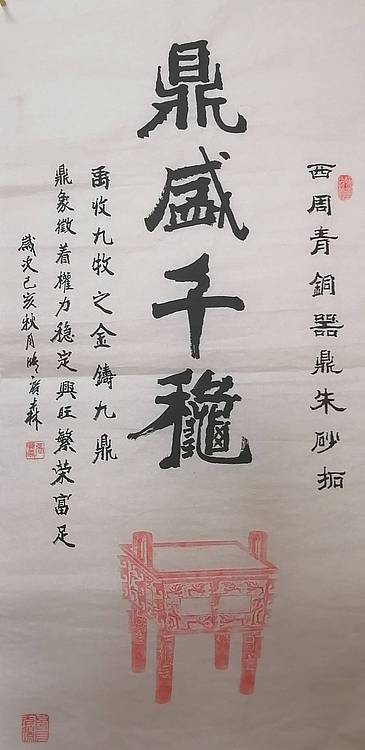 西周青銅器鼎朱砂拓
鼎盛千龝
禹收九牧之金鑄九鼎
鼎象徵着權力稳定興旺繁荣富足
歲次己亥秋月森